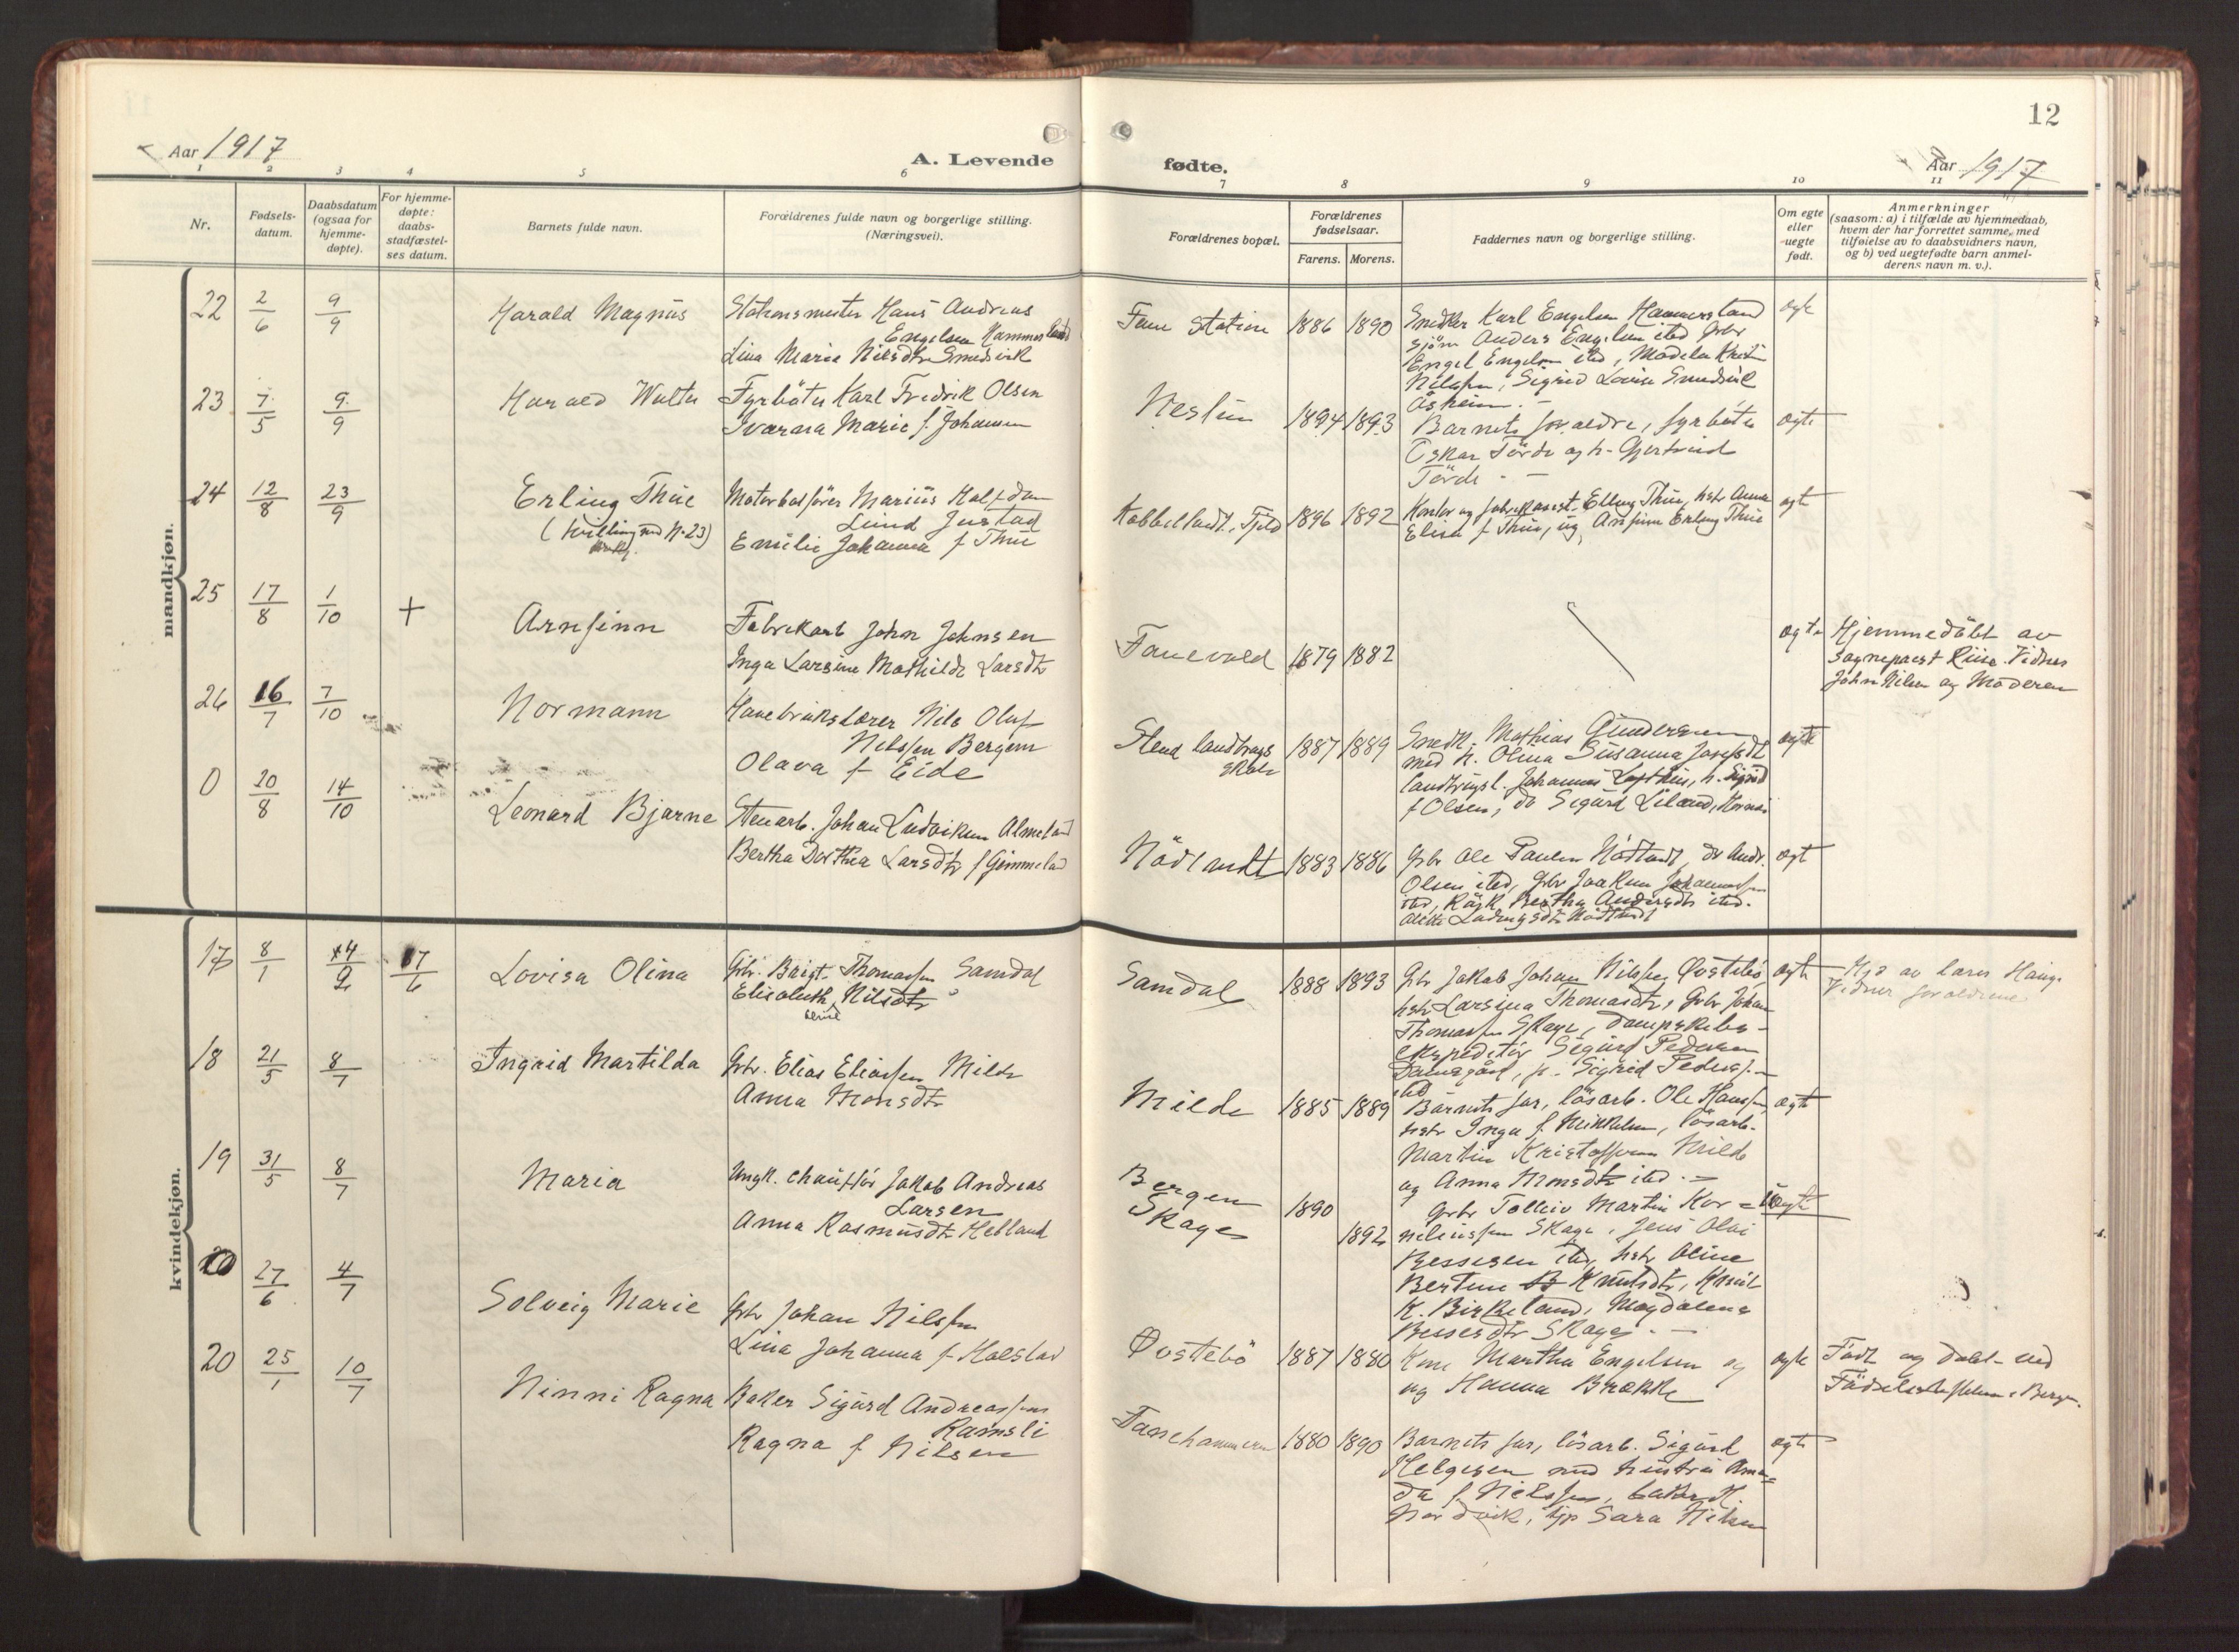 12
Aar 1917
A. Levende
fødte.
Aar 1917
1 2 3 4 5 6 7 8 9 10 11
Nr.
Fødsels-
datum.
Daabsdatum
(ogsaa for
hjemme-
døpte).
For hjemme-
døpte:
daabs-
stadfæstel-
ses datum.
Barnets fulde navn.
Forældrenes fulde navn og borgerlige stilling.
(Næringsvei).
Forældrenes bopæl.
Forældrenes
fødselsaar.
Farens. Morens.
Faddernes navn og borgerlige stilling.
Om egte
eller
uegte
født.
Anmerkninger
(saasom: a) i tilfælde av hjemmedaab,
hvem der har forrettet samme, med
tilføielse av to daabsvidners navn,
og b) ved uegtefødte barn anmel-
derens navn m. v.).
mandkjøn.
22 2/6 9/9 Harald Magnus
Stationsmester Hans Andreas
Engelsen Hammersland
Lina Maria Nilsdtr Smedsvik
Fane Station 1886 1890
Snedker Karl Engelsen Hammersland
sjöm Anders Engelsen ited Gbr
Engel Engelsen ited,
Nilssen, Sigrid Lovise Smedsvik
Åsheim. -
egte
23 7/5 9/9 Harald Walter
Fyrböter Karl Fredrik Olsen
Marie f. Johansen
Nestun 1894 1893
Barnets forældre, fyrböter
Oskar Förde og h. Gjertrud
Förde -
egte
24 12/8 23/9 Erling Thue
(tvilling med N. 23)
Marius Halfdan
Lund Justad
Emilie Johanna f Thue
Kobbeltvedt, Fjeld 1896 1892
Elling Thue, hstr Anna
Elisa f Thue, ug Arnfinn Erling Thue
egt
25 17/8 1/10 + Arnfinn
Fabrikarb John Johnsen
Inga Larsine Mathilde Larsdtr
Fanevald 1879 1882
egte
Hjemmedöbt av
sogneprest Riise. Vidner
John Nilsen og Moderen
26 16/7 7/10 Normann
Havebrukslærer Nils Oluf
Nilssen Bergem
Olava f Eide
Stend landbrugs
skole 1887 1889
Snedk. Mathias Gundersen
med h. Olina Susanna Josefsdt
landbrugsl. Johannes Løfthus, h. Sigrid
f Olsen, do Sigurd Liland,
egte
0 20/8 14/10 Leonard Bjarne
Stenarb. Johan Ludviksen Almeland
Bertha Dorthea Larsdtr f Gjimmeland
Nödtvedt 1883 1886
Gbr Ole Paulsen Nödtvedt, do Andr.
Olsen ited, Gbr Joakim Johannessen
ited, Bertha Andersdtr ited.
Ludvigsdtr Nödtvedt
egt
kvindekjøn.
17 8/1 4/2 17/6 Lovisa Olina
Gbr. Brigt Thomassen Samdal
Elisabeth Nilsdtr
Samdal 1888 1893
Gbr Jakob Johan Nilsen Øvstebö,
hstr Larsina Thomasdtr, Gbr Johan
Thomassen Skage, dampskibs-
ekspeditör Sigurd Pedersen
Damsgård, p. Sigrid Pedersen
ited
egte
Hjd av lærer Hauge
Vidner forældrene
18 21/5 8/7 Ingrid Martilda
Gbr. Elias Eliassen Milde
Anna Monsdtr
Milde 1885 1889
Barnets far, lösarb. Ole Hanssen,
hstr Inga f. Mikkelsen, lösarb.
Martin Kristoffersen Milde
og Anna Monsdtr ited. -
egte
19 31/5 8/7 Maria
Ungk. chaufför Jakob Andreas
Larsen
Anna Rasmusdtr Hebland
Bergen
Skage
1890
1892
Gbr Tolleiv Martin Kor=
neliussen Skage, Jens Olai
Bessesen ited, hstr Oline
Bertine Knutsdtr, Knut
K. Birkeland, Magdalena
Bessesdtr Skage. -
Uegte
20 27/6 4/7 Solveig Marie
Gbr Johan Nilssen
Lina Johanna f Halstad
Øvstebö 1887 1880
Kone Martha Engelsen og
og Hanna Brække
egte
Födt og döbt ved
Födselsstiftelsen i Bergen.
20 25/1 10/7 Ninni Ragna
Baker Sigurd Andreassen
Ramsli
Ragna f Nilsen
Fanehammeren 1880 1890
Barnets far, lösarb. Sigurd
Helgesen med hustru Aman=
da f. Nilssen, baker H.
Nordvik, tjp Sara Nilsen
egte